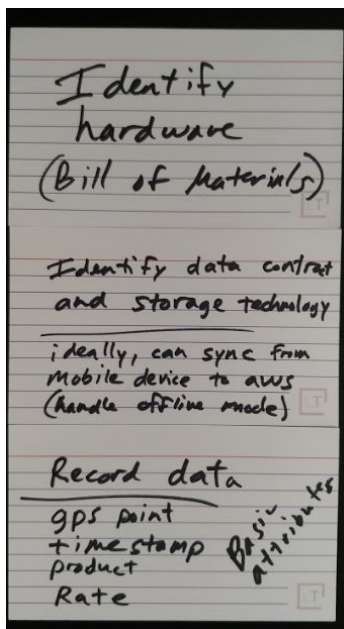 Identify
hardware
(Bill of Materials)
LT
Identify data contract
and storage technology
ideally, can sync from
mobile device to aws
(handle offline mode)
LT
Record data
gps point
timestamp
product
Rate
Basic
attributes
LT